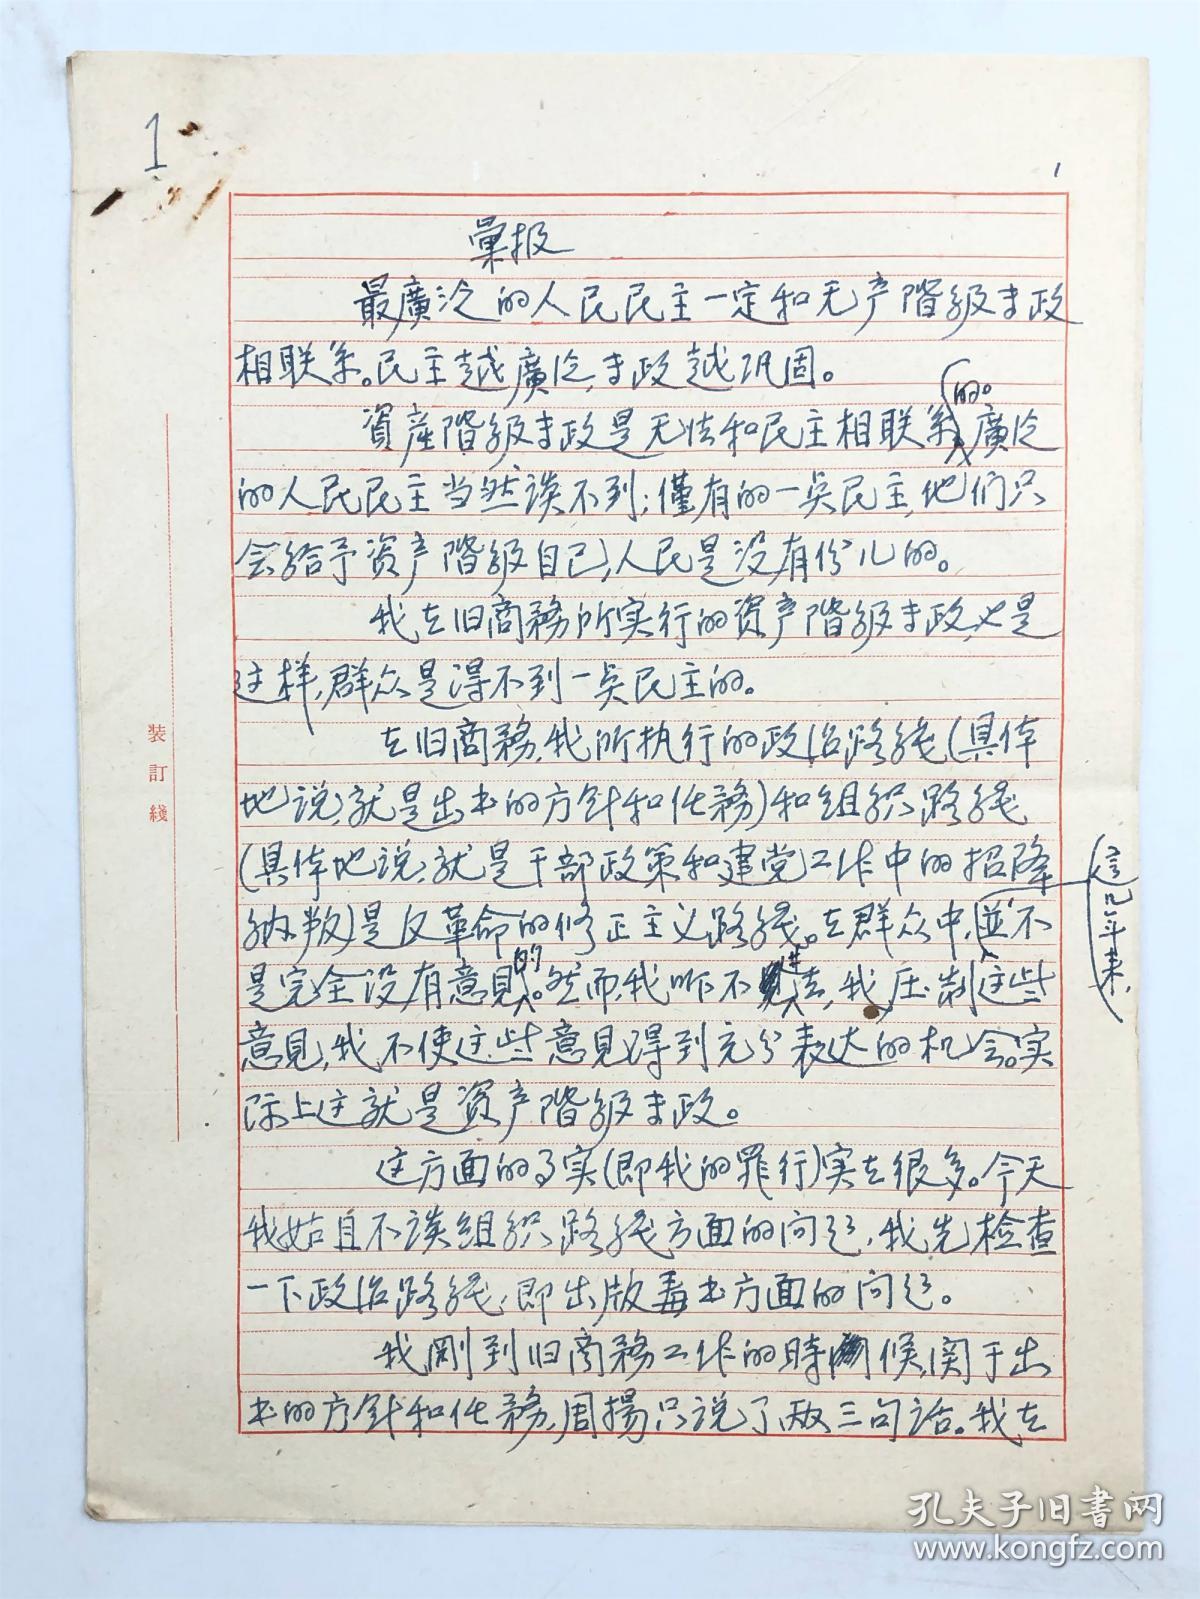 1
1
彙报
最廣泛的人民民主一定和无产階級专政
相联系。民主越廣泛,专政越巩固。
資産階級专政是无法和民主相联系的。廣泛
的人民民主当然谈不到;僅有的一点民主,他们只
会给予资产階级自己,人民是没有份儿的。
我在旧商務所实行的资产階级专政,也是
这样,群众是得不到一点民主的。
在旧商務,我所执行的政治路线(具体
地说,就是出书的方针和任務)和组织路线
(具体地说,就是干部政策和建党工作中的招降
纳叛)是反革命的修正主义路线。在群众中,這几年来,並不
是完全没有意见的。然而,我听不进去,我压制这些
意见,我不使这些意见得到充分表达的机会。实
际上这就是资产階级专政。
这方面的事实(即我的罪行)实在很多。今天
我姑且不谈组织路线方面的问题,我先检查
一下政治路线,即出版毒书方面的问题。
我剛到旧商務工作的時候,関于出
书的方針和任務,周揚只说了两三句话。我在
装訂綫
孔夫子旧書网
www.kongfz.com